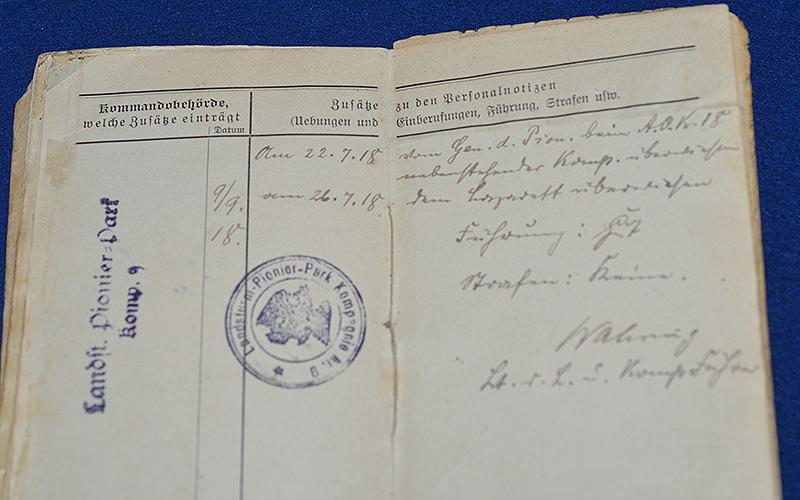 Kommandobehörde,
welche Zusätze einträgt
Datum
Zusätze zu den Personalnotizen
(Uebungen und Einberufungen, Führung, Strafen usw.
Am 22.7.18 vom Gen. d. Pion. beim A.O.K. 18
nebenstehender Komp. überwiesen
9/9. am 26.7.18. dem Lazarett überwiesen
18.
Führung: Gut
Strafen: Keine.
Lt. d. L. u. Komp. Führer
Landst. Pionier-Park
Komp. 9
Landsturm-Pionier-Park Kompagnie Nr. 9